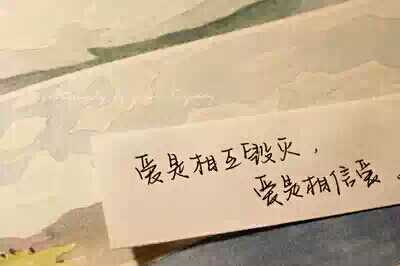 爱是相互毁灭，
爱是相信爱